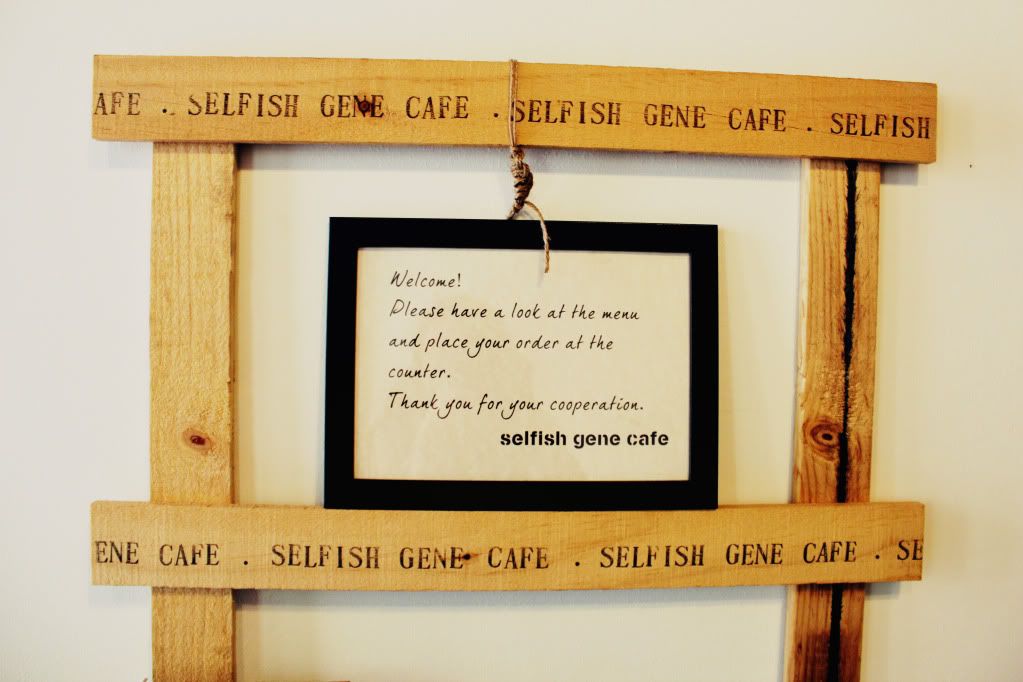 AFE . SELFISH GENE CAFE . SELFISH GENE CAFE . SELFISH
Welcome!
Please have a look at the menu
and place your order at the
counter.
Thank you for your cooperation.
selfish gene cafe
ENE CAFE . SELFISH GENE CAFE . SELFISH GENE CAFE . SE